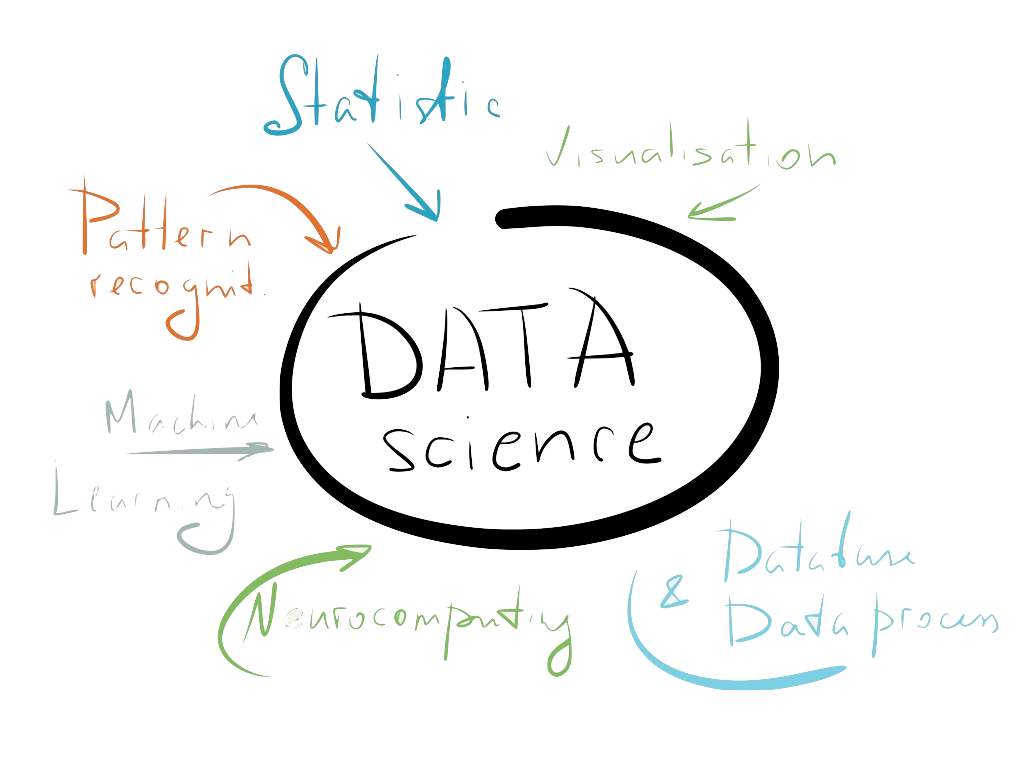 Statistic
Visualisation
Pattern
recognit.
DATA
science
Machine
Learning
Neurocomputing
& Database
Data process